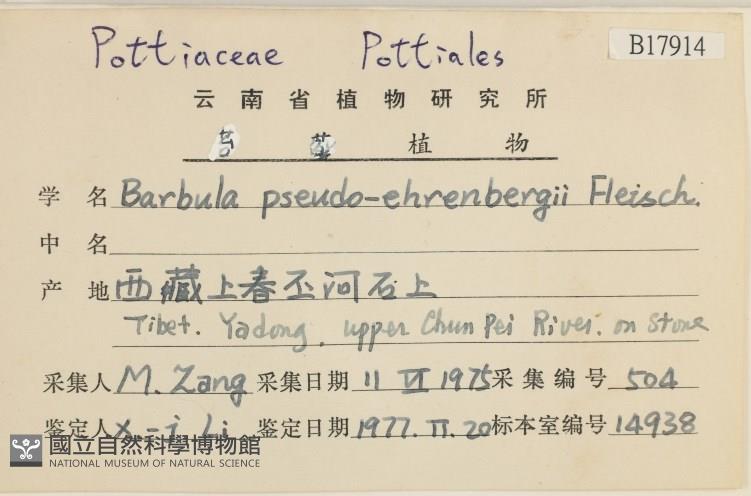 Pottiaceae Pottiales B17914
云南省植物研究所
苔藓植物
学名 Barbula pseudo-ehrenbergii Fleisch.
中名
产地 西藏上春丕河石上
Tibet. Yadong, upper Chun Pei River. on Stone
采集人 M. Zang 采集日期 11 VI 1975 采集编号 504
鉴定人 X-j Li 鉴定日期 1977. II. 20 标本室编号 14938
國立自然科學博物館
NATIONAL MUSEUM OF NATURAL SCIENCE